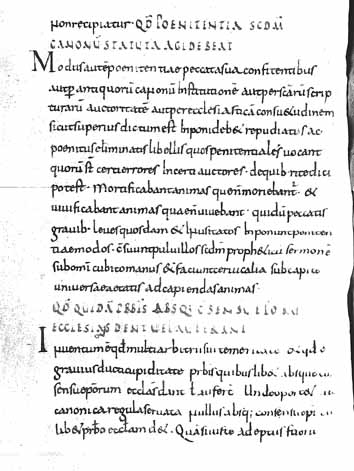 non recipiatur· QD POENITENTIA SCDM
CANONUM STATUTA AGI DEBEAT
Modus autē poenitentiae peccata sua confitentibus
aut p antiquorū canonū institutionē aut per scārum scrip
turarū auctoritatē aut per ecclesiasticā consuetudinem
sicut superius dictum est inponi deb& repudiatis ac
poenitus eliminatis libellis quos penitentiales uocant
quorū st certi errores incerti auctores· de quib· rite dici
potest· Mortificabant animas quę non moriebant· &
uiuificabant animas quae n uiuebant· qui dū p peccatis
grauib· leues quosdam & inusitatos inponunt poeniten
tiae modos· csuunt puluillos scdm proph&icū sermonē
sub omni cubito manus & faciunt ceruicalia sub capite
uniuersae aetatis ad capiendas animas·
QD QUIDA PBBIS ABSQ CSENSU
ECCLESIAS DENT UEL AUFERANT
Inuentum ē qd multi arbitrii sui temeritate
grauius ducti cupiditate prbis quibuslib& absque
sensu eporum ecclas dant auferē Unde oport&
canonica regula seruata nullus absq; consensu epi
lib& prbo ecclam d&· Quā si iuste adeptus fuerit